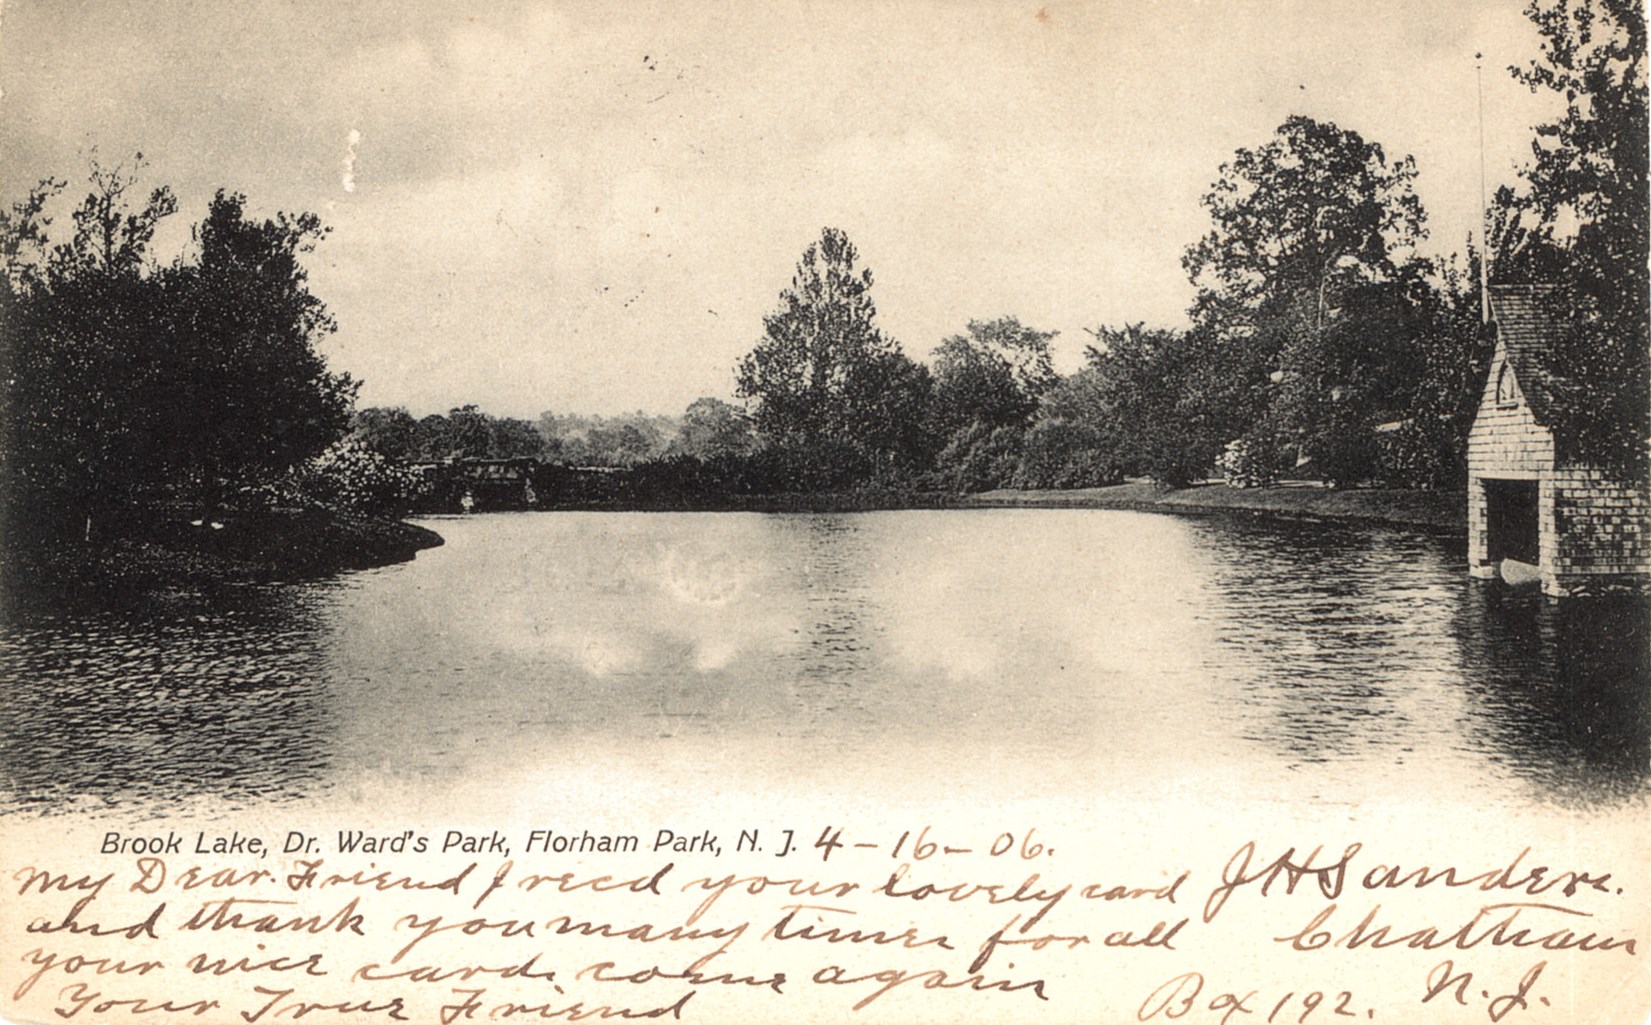 Brook Lake, Dr. Ward's Park, Florham Park, N. J. 4-16-06.
My Dear. Friend I recd your lovely card
and thank you many times for all
your nice cards come again
Your True Friend
JHSanders.
Chatham
Box 192. N.J.